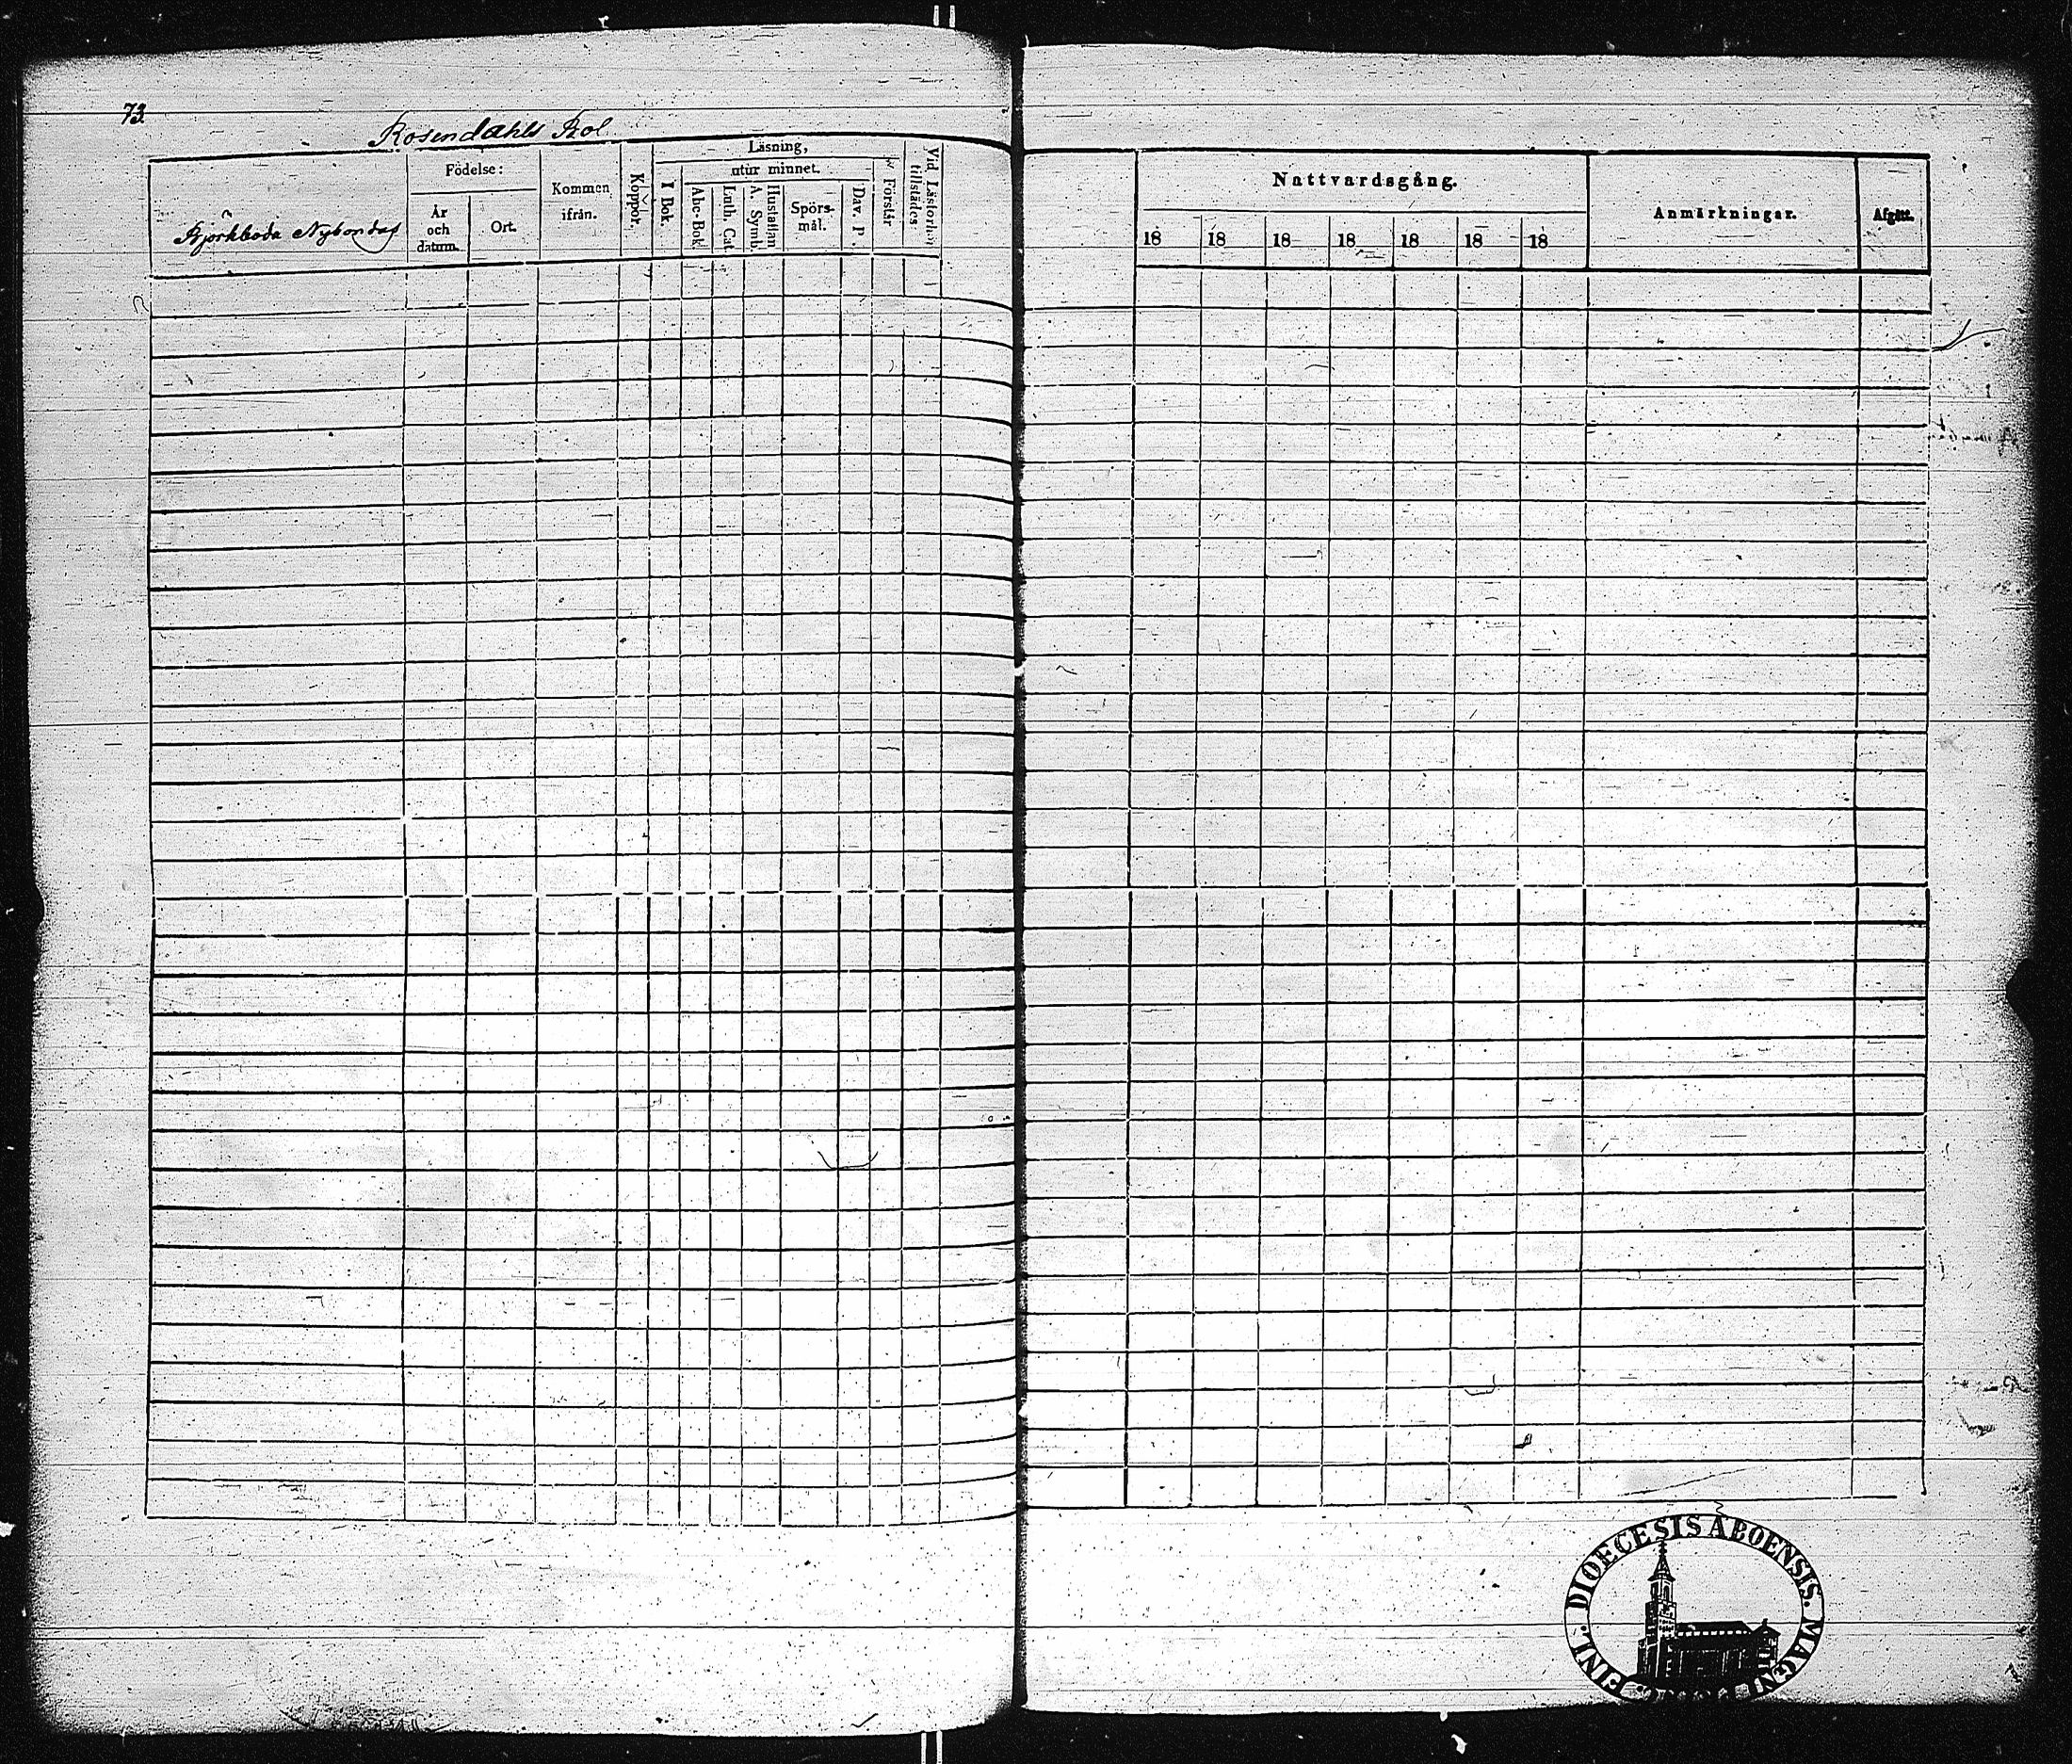 73.
Rosendahls Rol
Björkboda Nybondas
Födelse:
År och datum.
Ort.
Kommen ifrån.
Koppor.
Läsning,
I Bok.
utur minnet.
Abc-Bok.
Luth. Cat.
Hustaflan
A. Symb.
Spörs-
mål.
Dav. P.
Förstår
Vid Läsförhör
tillstädes.
Nattvardsgång.
18 18 18 18 18 18 18
Anmärkningar.
Afgått.
DIOECESIS ÅBOENSIS. MAGNI
FINL.